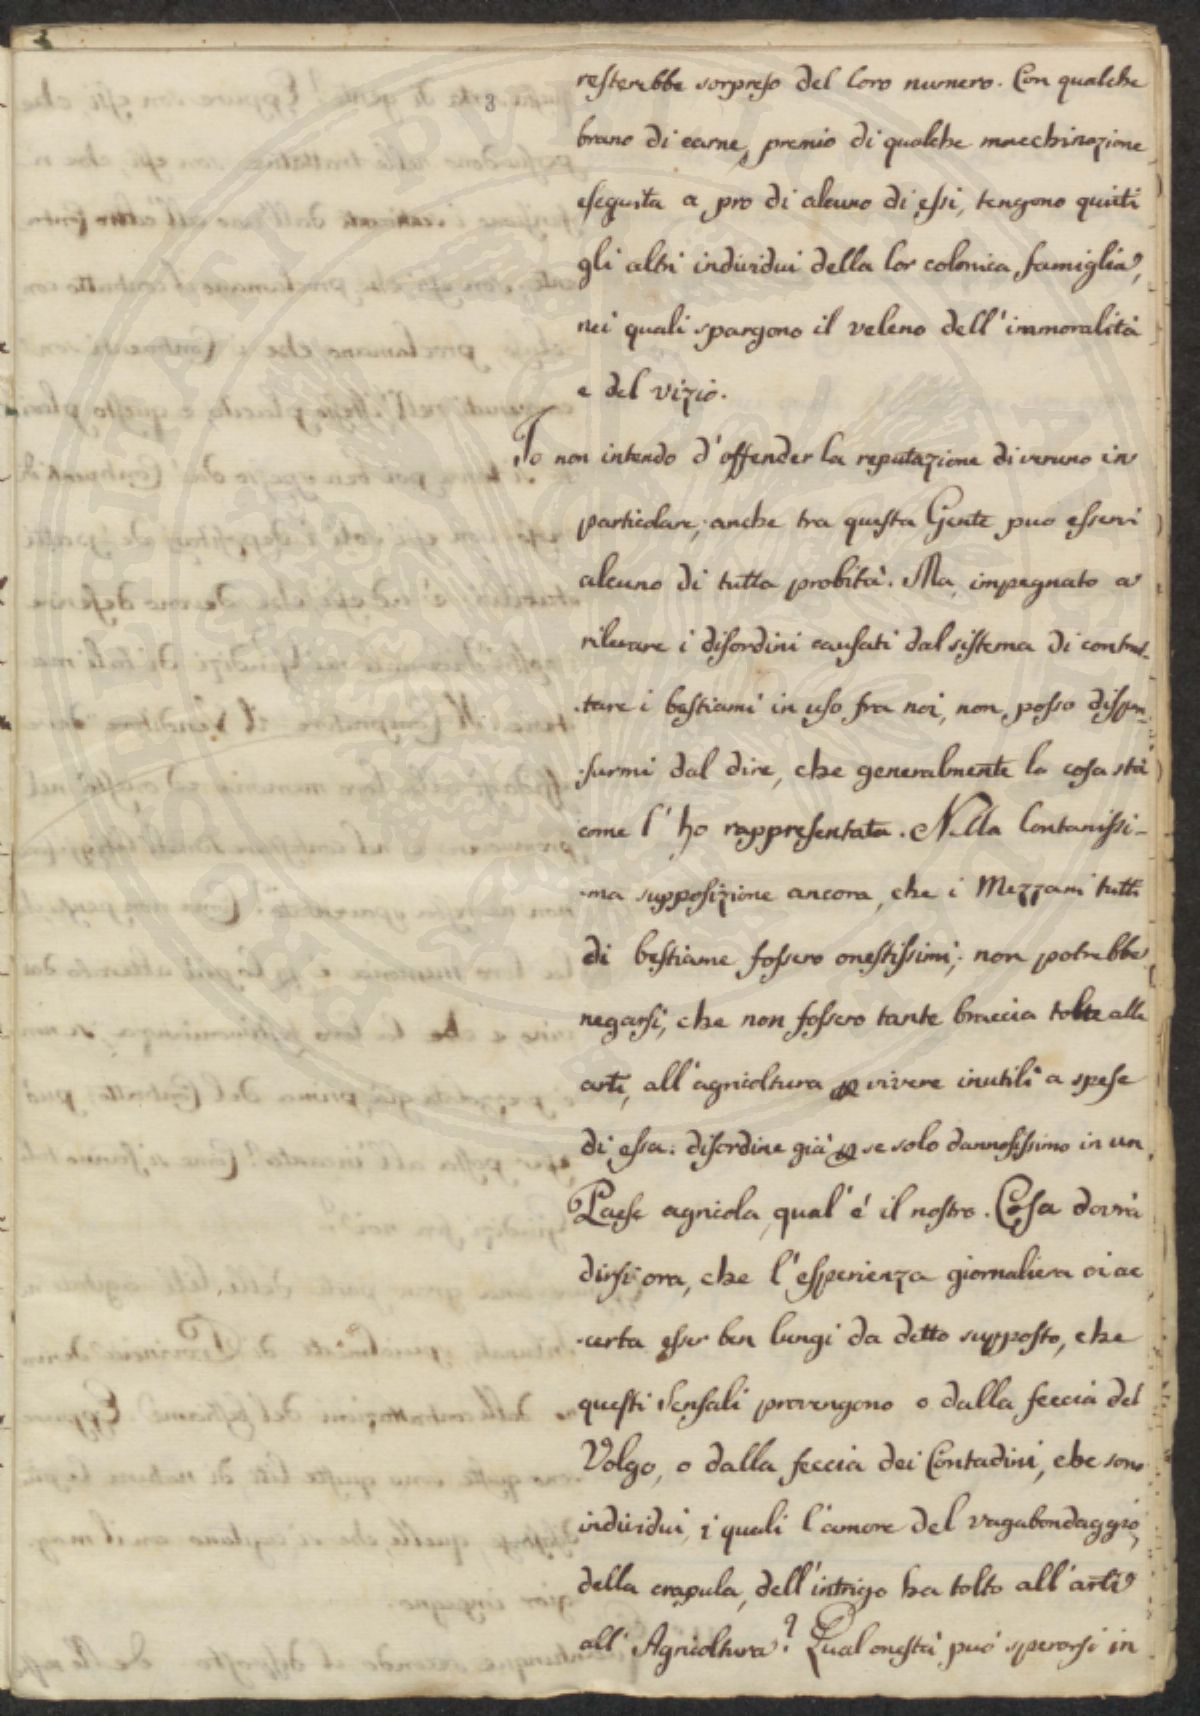 3
resterebbe sorpreso del loro numero. Con qualche
brano di carne, premio di qualche macchinazione
eseguita a pro di alcuno di essi, tengono quieti
gli altri individui della lor colonica famiglia,
nei quali spargono il veleno dell'immoralità
e del vizio.
Io non intendo d'offender la reputazione di veruno in
particolare; anche tra questa Gente puo esservi
alcuno di tutta probità. Ma, impegnato a
rilevare i disordini causati dal sistema di contrat-
-tare i bestiami in uso fra noi, non posso dispen-
-sarmi dal dire, che generalmente la cosa stà
come l'ho rappresentata. Nella lontanissi-
-ma supposizione ancora, che i Mezzani tutti
di bestiame fossero onestissimi; non potrebbe
negarsi, che non fossero tante braccia tolte alle
arti, all'agricoltura e vivere inutili a spese
di essa: disordine già se solo dannosissimo in un
Paese agricola, qual'é il nostro. Cosa dovrà
dirsi ora, che l'esperienza giornaliera ci ac
-certa esser ben lungi da detto supposto, che
questi Sensali provengono o dalla feccia del
Volgo, o dalla feccia dei Contadini, che sono
individui, i quali l'amore del vagabondaggio,
della crapula, dell'intrigo ha tolto all'arti
all'Agricoltura? Qual onestà può sperarsi in